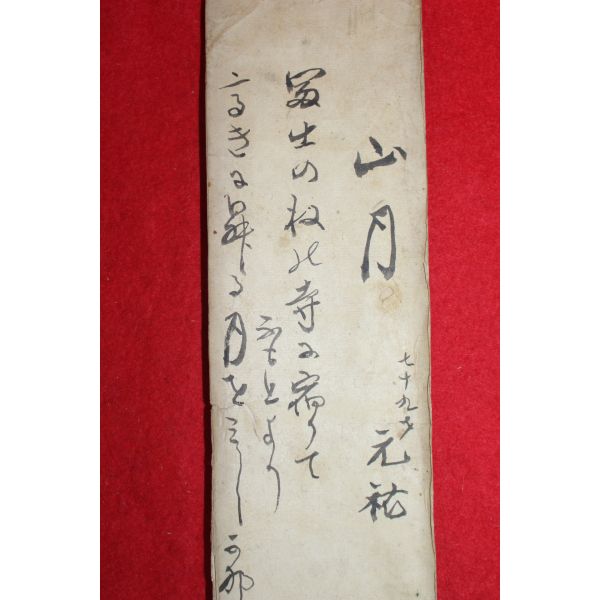 山月
七十九才 元祐
冨士の根の寺に宿りて
雲上より
高きに昇る月をみしかな